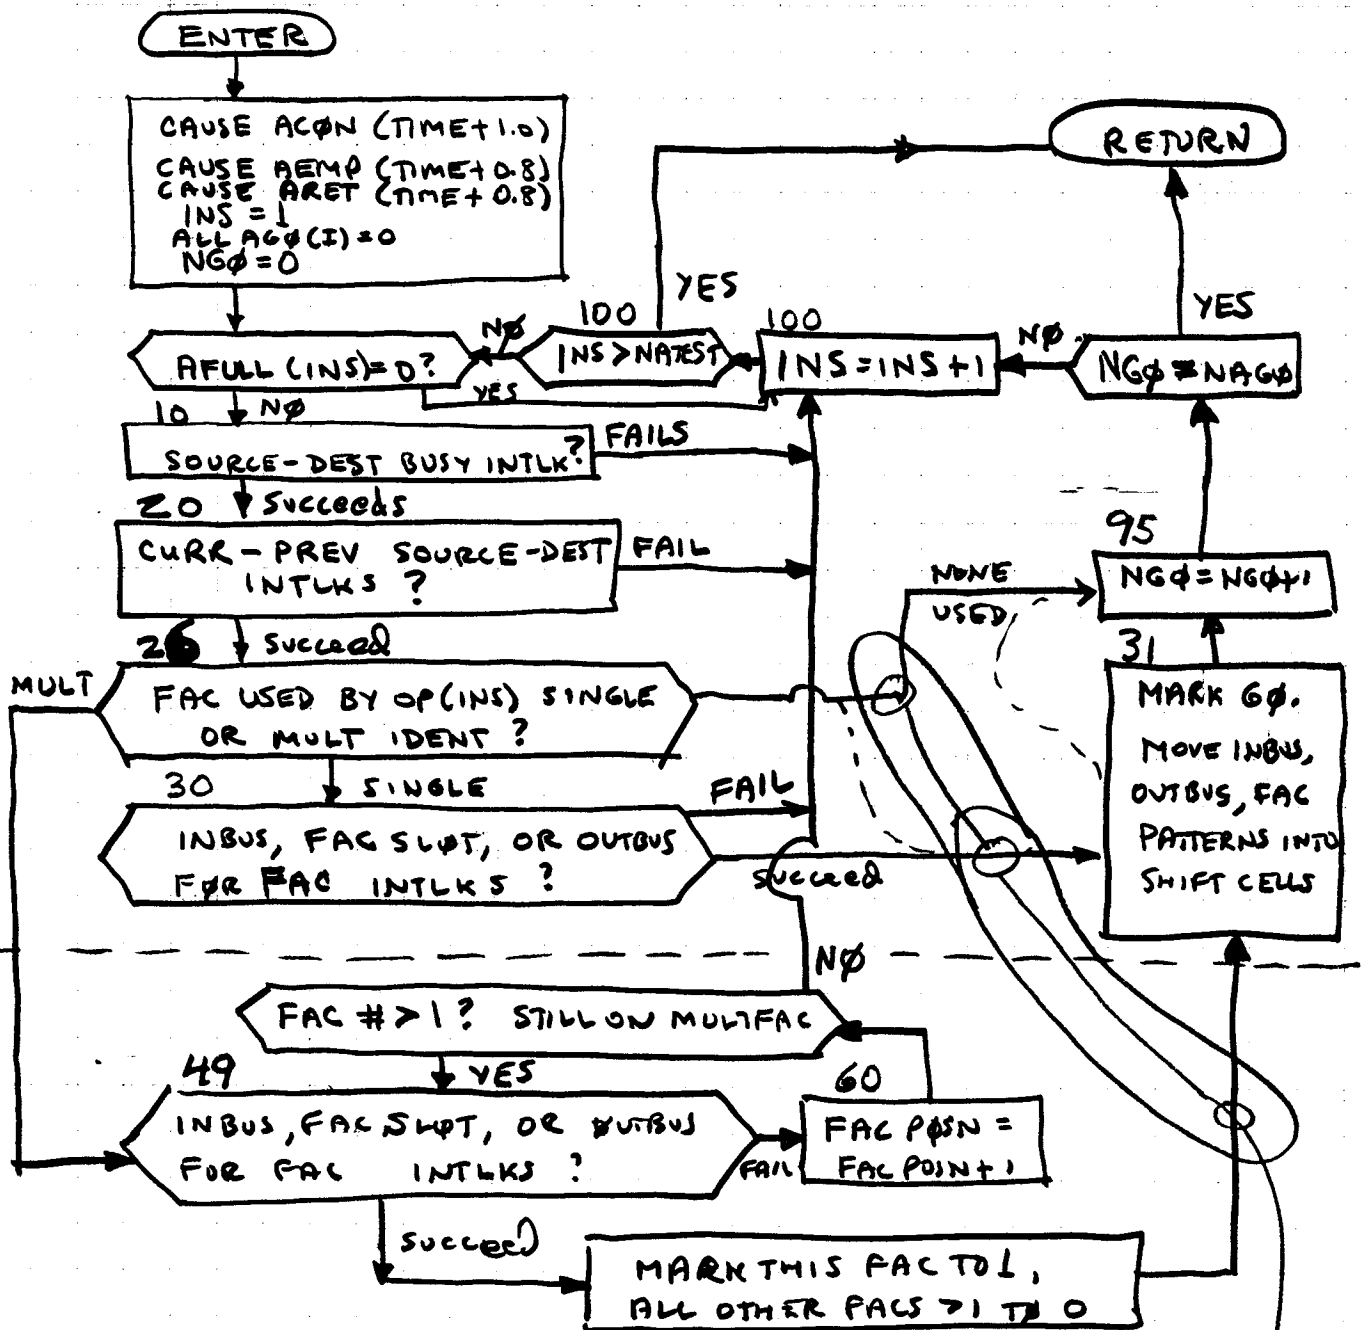 ENTER
CAUSE ACØN (TIME+1.0)
CAUSE AEMP (TIME+0.8)
CAUSE ARET (TIME+0.8)
INS = 1
ALL AGØ(I)=0
NGØ=0
RETURN
YES
YES
100
100
NØ
NØ.
AFULL (INS)=0?
INS>NATEST
INS=INS+1
NGØ=NAGØ
YES
10
NØ
SOURCE-DEST BUSY INTLK?
FAILS
20
Succeeds
CURR-PREV SOURCE-DEST
INTLKS ?
FAIL
95
NGØ=NGØ+1
NONE
USED
26
Succeed
31
MULT
FAC USED BY OP(INS) SINGLE
OR MULT IDENT ?
MARK GØ.
MOVE INBUS,
OUTBUS, FAC
PATTERNS INTO
SHIFT CELLS
30
SINGLE
FAIL
INBUS, FAC SLØT, OR OUTBUS
FØR FAC INTLKS ?
Succeed
NØ
FAC # > 1? STILL ON MULTFAC
49
YES
60
INBUS, FAC SLØT, OR ØUTBUS
FOR FAC INTLKS ?
FAIL
FAC PØSN =
FAC POSN+1
Succeed
MARK THIS FAC TO 1,
ALL OTHER FACS >1 TØ 0